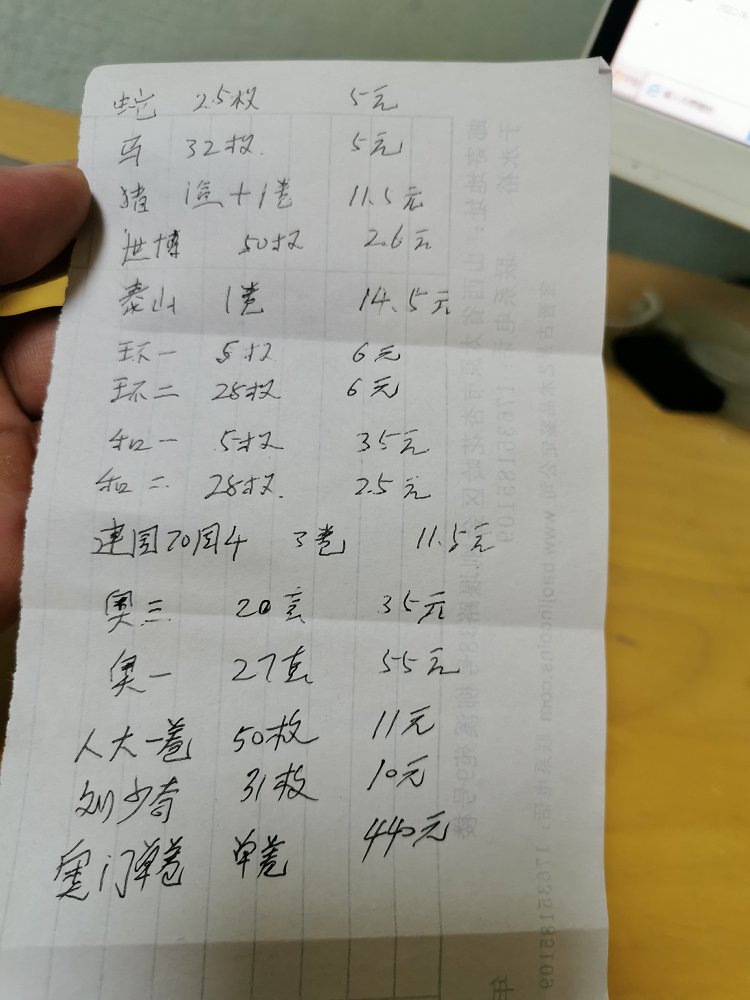 蛇 25枚 5元
马 32枚. 5元
猪 1盒+1卷 11.5元
世博 50枚 2.6元
泰山 1卷 14.5元
环一 5枚 6元
环二 28枚 6元
和一 5枚 35元
和二 28枚. 2.5元
建国70周年 3卷 11.5元
奥三 20套 35元
奥一 27套 55元
人大一卷 50枚 11元
刘少奇 31枚 10元
奥门单卷 单卷 440元
www.baojincoins.com
17635185109
17635185109